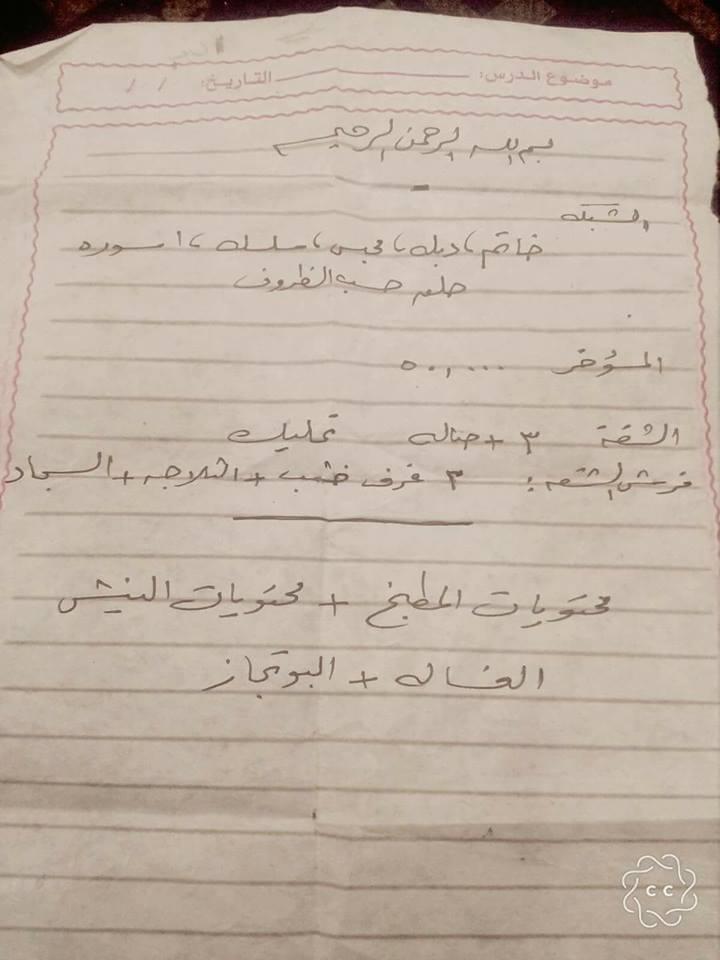 موضوع الدرس: التاريخ: / /
بسم الله الرحمن الرحيم
الشبكه
خاتم، دبله، محبس، سلسله، ا سوره
حلق حسب الظروف
المؤخر ٥٠,٠٠٠
الشقة ٣ + صاله تمليك
فرش الشقه: ٣ غرف خشب + الثلاجه + السجاد
محتويات المطبخ + محتويات النيش
الغساله + البوتجاز
CC